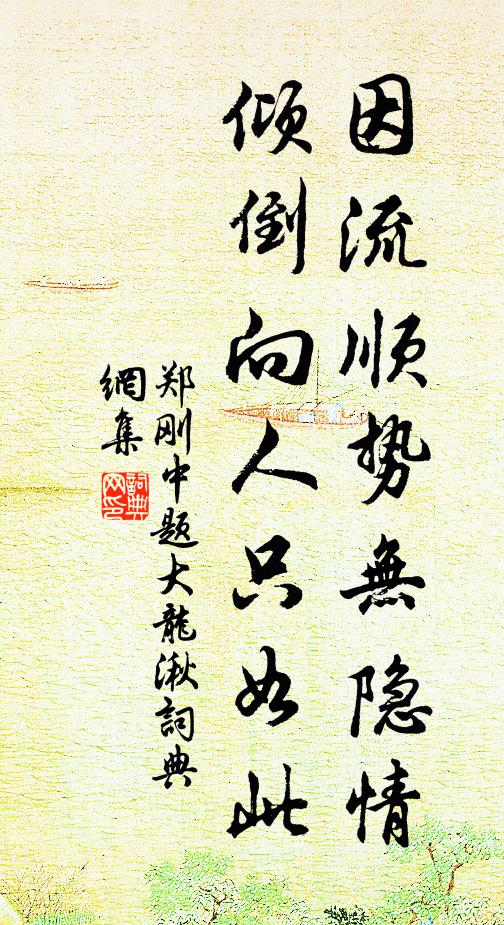 因流顺势無隐情
倾倒向人只如此
郑刚中题大龍湫詞典
網集
詞典
网印